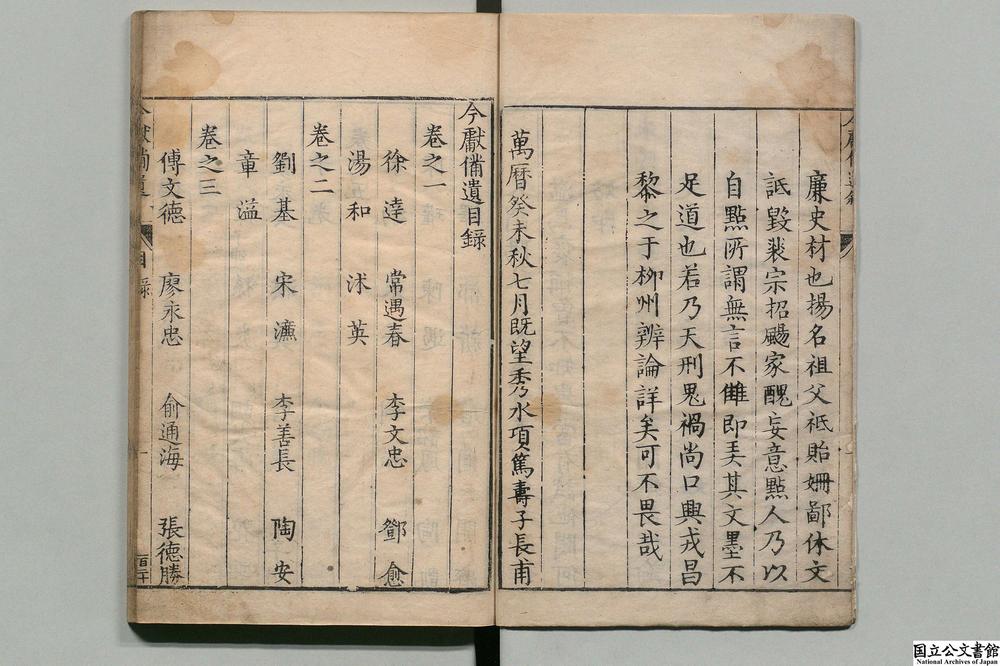 廉史材也揚名祖父袛貽姍鄙休文
詆毀裴宗招颺家醜妄意點人乃以
自點所謂無言不讎即美其文墨不
足道也若乃天刑鬼禍尚口興戎昌
黎之于柳州辨論詳矣可不畏哉
萬曆癸未秋七月既望秀水項篤壽子長甫
今獻備遺目錄
卷之一
徐達 常遇春 李文忠 鄧愈
湯和 沐英
卷之二
劉基 宋濂 李善長 陶安
章溢
卷之三
傅文德 廖永忠 俞通海 張德勝
今獻備遺 目錄 一
国立公文書館
National Archives of Japan